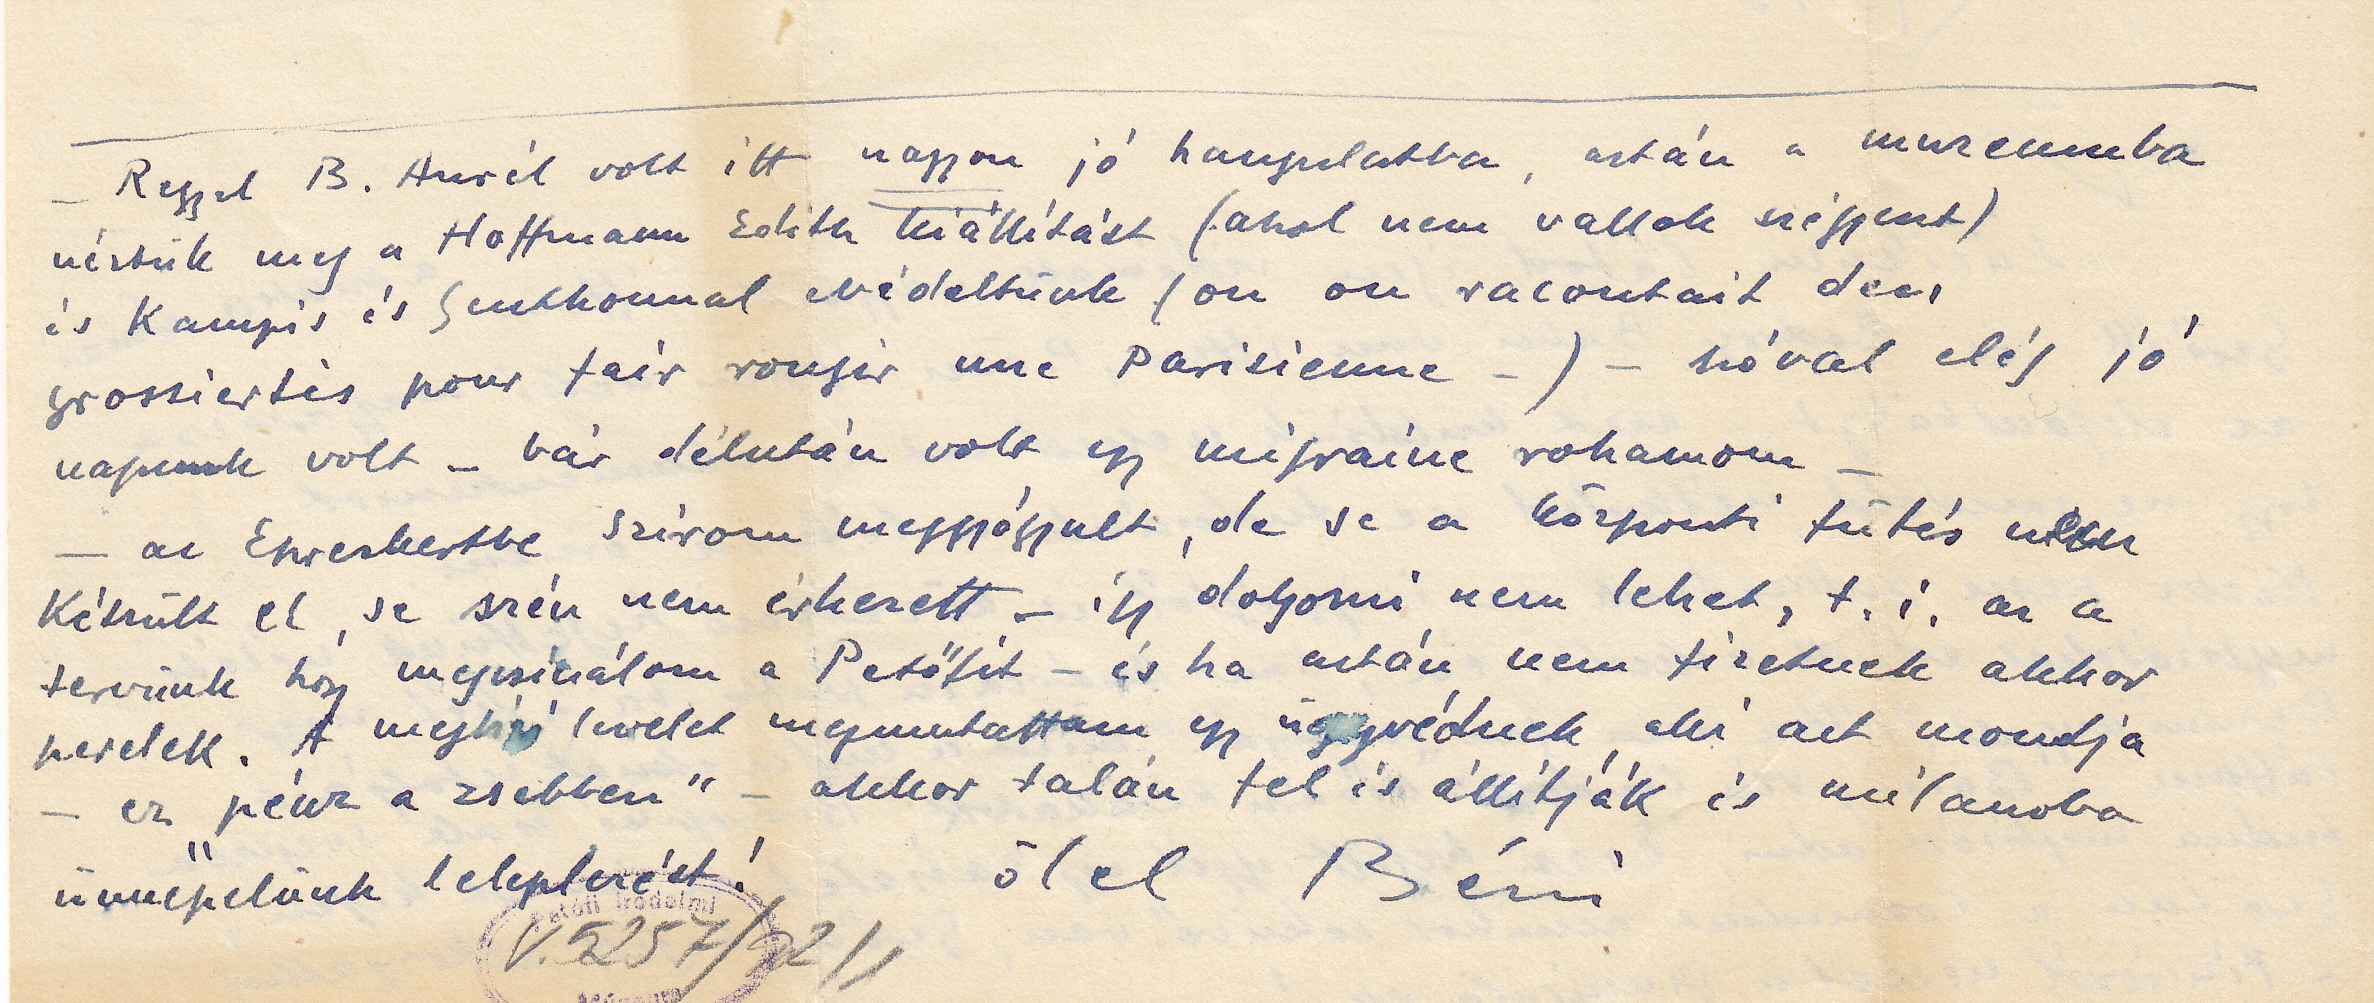 – Reggel B. Aurél volt itt nagyon jó hangulatba, aztán a muzeumba
néztük meg a Hoffmann Edith kiállitást (ahol nem vallok szégyent)
és Kampis és Genthonnal ebédeltünk (on on racontait des
grossiertés pour fair rougir une Parisienne –) – szóval elég jó
napunk volt – bár délután volt egy migraine rohamom –
– az Epreskertbe szirom meggyógyult, de se a központi fütés nem
készült el, se szén nem érkezett – igy dolgozni nem lehet, t. i. az a
tervünk hogy megcsinálom a Petőfit – és ha aztán nem fizetnek akkor
perelek. A meghivó levelet megmutattam egy ügyvédnek aki azt mondja
– ez „pénz a zsebben" – akkor talán fel is állitják és milanoba
ünnepelünk leleplezést!
ölel Béni
Petőfi Irodalmi
V. 5257/92/1
Múzeum